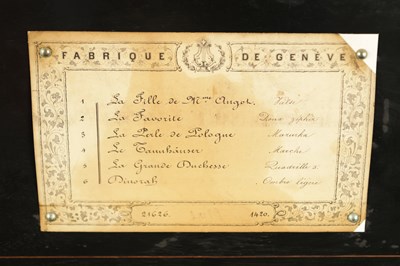 FABRIQUE DE GENÈVE
1 La Fille de Mme Angot, Valse
2 La Favorite
3 La Perle de Pologne Mazurka
4 Le Tannhäuser Marche
5 La Grande Duchesse Quadrille
6 Dinorah Ombre légère
21626. 1420.